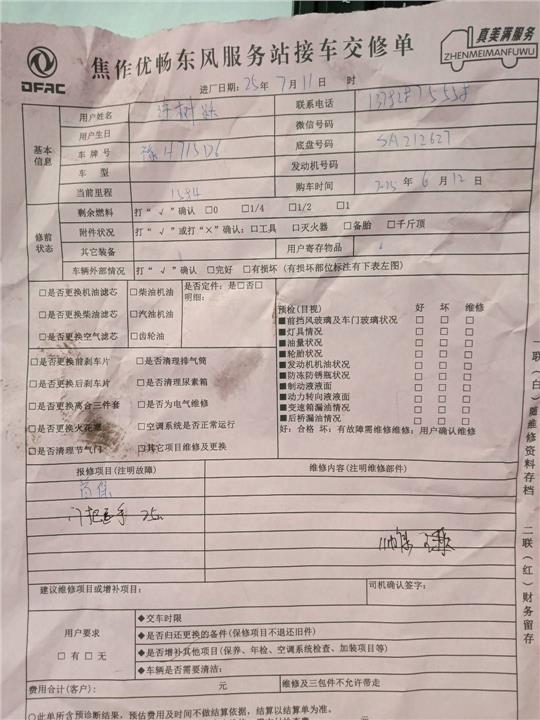 DFAC
焦作优畅东风服务站接车交修单
真美满服务
ZHENMEIMANFUWU
进厂日期：25年 7月 11日 时
基本信息
用户姓名
联系电话
用户生日
微信号码
车牌号
底盘号码 SA212627
车型
发动机号码
当前里程
购车时间 2025年 6月 12日
修前状态
剩余燃料 打“√”确认 □0 □1/4 □1/2 □1
附件状况 打“√”或打“×”确认：□工具 □灭火器 □备胎 □千斤顶
其它装备 用户寄存物品
车辆外部情况 打“√”确认 □完好 □有损坏（有损坏部位标注有下表左图）
□是否更换机油滤芯 □柴油机油 是否定件：是□否□
明细：
□是否更换柴油滤芯 □汽油机油
□是否更换空气滤芯 □齿轮油
预检（目视） 好 坏 维修
■前挡风玻璃及车门玻璃状况 □ □ □
■灯具情况 □ □ □
■油量状况 □ □ □
■轮胎状况 □ □ □
■发动机机油状况 □ □ □
■防冻防锈瓶状况 □ □ □
■制动液液面 □ □ □
■动力转向液液面 □ □ □
■变速箱漏油情况 □ □ □
■后桥漏油情况 □ □ □
好：合格 坏：有故障需维修维修：用户确认维修
□是否更换前刹车片 □是否清理排气筒
□是否更换后刹车片 □是否清理尿素箱
□是否更换离合三件套 □是否为电气维修
□是否更换火花塞 □空调系统是否正常运行
□是否清理节气门 □其它项目维修及更换
报修项目（注明故障） 维修内容（注明维修部件）
首保
门把手
建议维修项目或增补项目： 司机确认签字：
用户要求
□有□无
◆交车时限
◆是否归还更换的备件（保修项目不退还旧件）
◆是否增补其他项目（保养、年检、空调系统检查、加装项目等）
◆车辆是否需要清洁：
费用合计（客户）： 元 维修及三包件不允许带走
○此单所含预诊断结果，预估费用及时间不做结算依据，结算以结算单为准。
一联（白）随维修资料存档
二联（红）财务留存